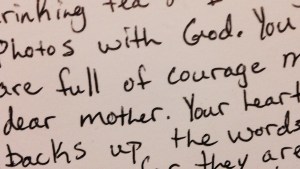 rinking tea
photos with God. You
are full of courage m
dear mother. Your heart
backs up the words
they are